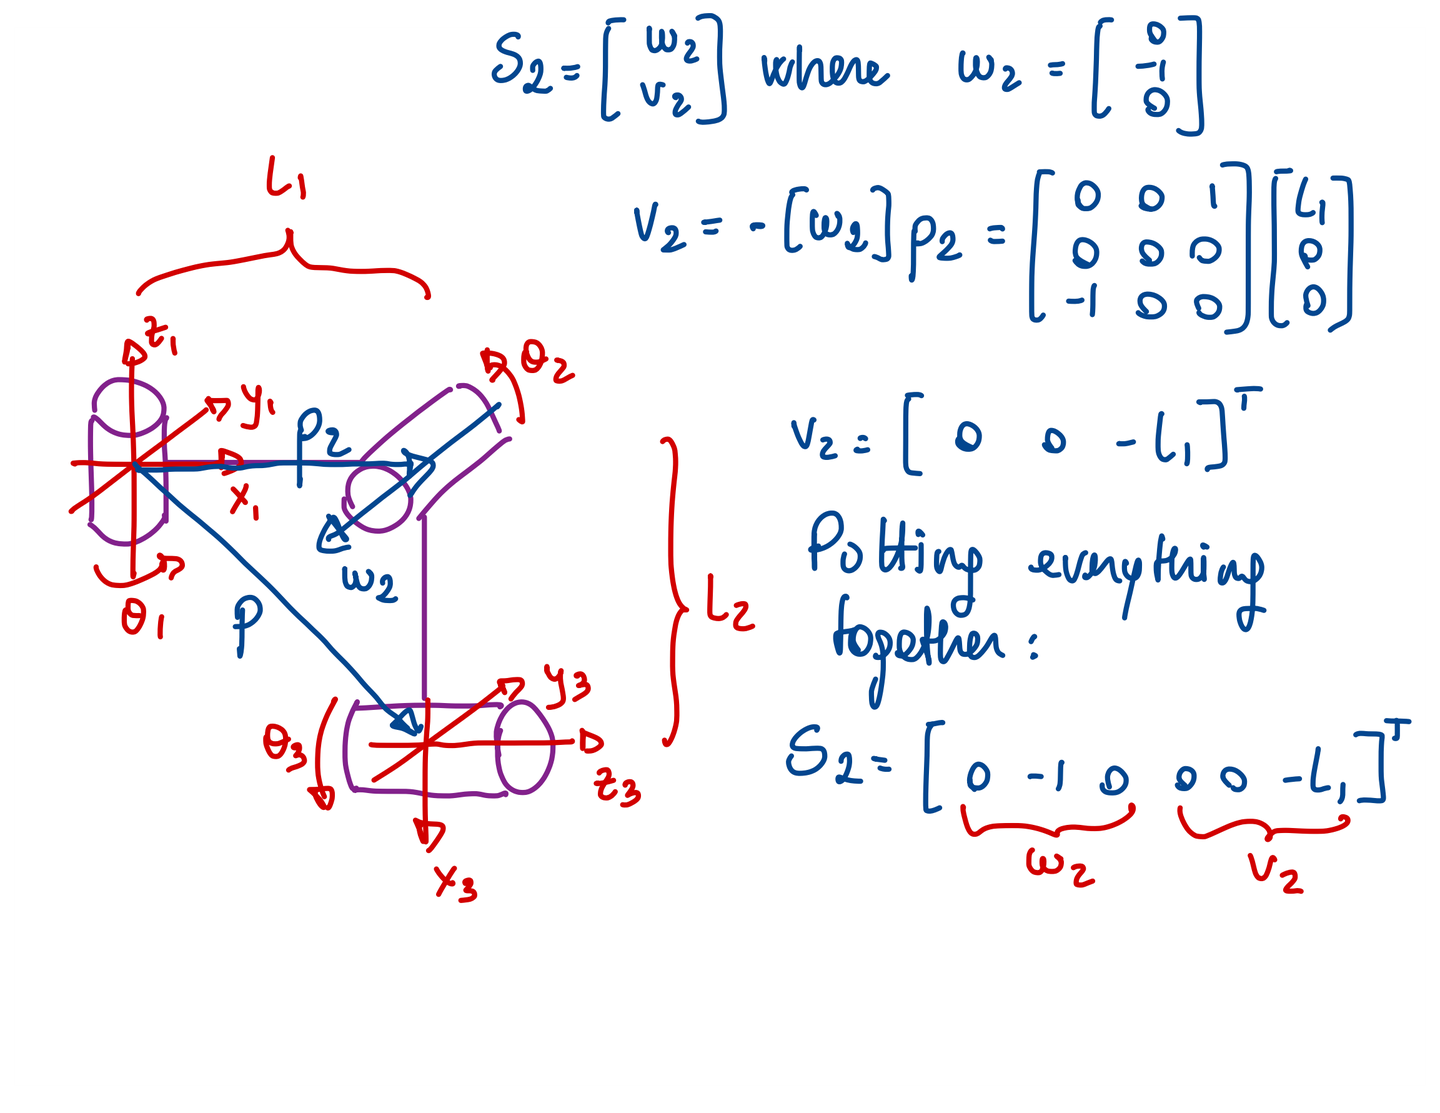 S2 = [ w2 v2 ] where w2 = [ 0 -1 0 ]
v2 = - [w2] p2 = [ 0 0 1
0 0 0
-1 0 0 ] [ L1 0 0 ]
v2 = [ 0 0 -L1 ]^T
Potting everything
together:
S2 = [ 0 -1 0 0 0 -L1 ]^T
w2 v2
L1
z1
y1
p2
x1
θ2
w2
θ1
p
L2
y3
θ3
z3
x3